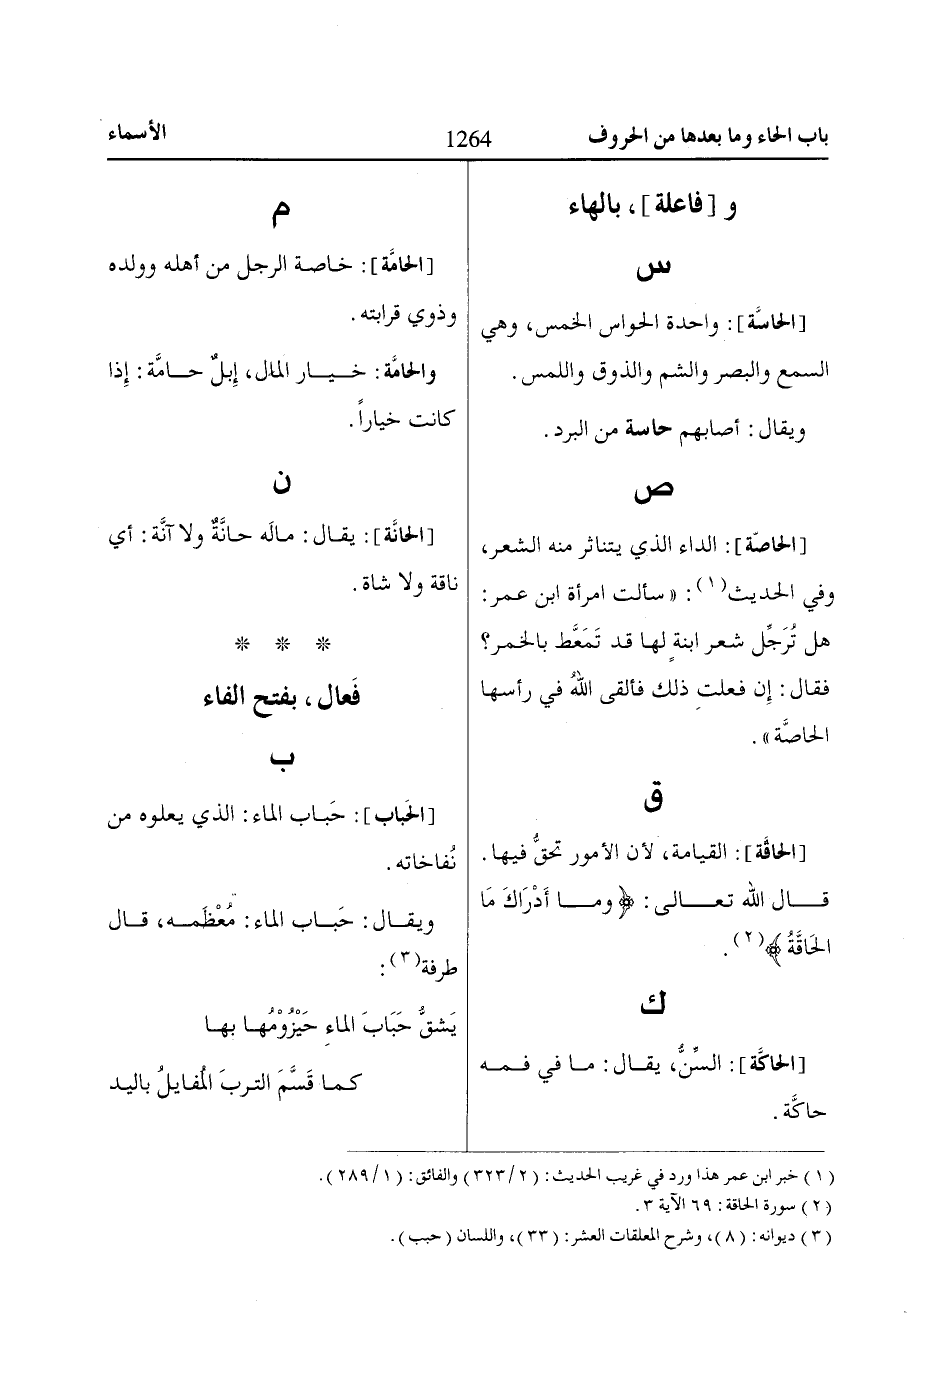 باب الحاء وما بعدها من الحروف
1264
الأسماء
و [فاعلة]، بالهاء
س
[الحاسَّة]: واحدة الحواس الخمس، وهي
السمع والبصر والشم والذوق واللمس.
ويقال: أصابهم حاسة من البرد.
ص
[الحاصّة]: الداء الذي يتناثر منه الشعر،
وفي الحديث(١): «سألت امرأة ابن عمر:
هل تُرَجِّل شعر ابنةٍ لها قد تَمَعَّط بالخمر؟
فقال: إن فعلتِ ذلك فألقى اللهُ في رأسها
الحاصَّة».
ق
[الحاقَّة]: القيامة، لأن الأمور تحقُّ فيها.
قال الله تعالى: ﴿وما أَدْرَاكَ مَا
الحَاقَّةُ﴾(٢).
ك
[الحاكَّة]: السنُّ، يقال: ما في فمه
حاكَّة.
م
[الحامَّة]: خاصة الرجل من أهله وولده
وذوي قرابته.
والحامَّة: خيار المال، إبلٌ حامَّة: إذا
كانت خياراً.
ن
[الحانَّة]: يقال: مالَه حانَّةٌ ولا آنَّة: أي
ناقة ولا شاة.
* * *
فَعال، بفتح الفاء
ب
[الحَباب]: حَباب الماء: الذي يعلوه من
نُفاخاته.
ويقال: حَباب الماء: مُعْظَمه، قال
طرفة(٣):
يَشقُّ حَبَابَ الماءِ حَيْزُوْمُها بها
كما قَسَّمَ التربَ المُفايلُ باليد
(١) خبر ابن عمر هذا ورد في غريب الحديث: (٢/٣٢٣) والفائق: (١/٢٨٩).
(٢) سورة الحاقة: ٦٩ الآية ٣.
(٣) ديوانه: (٨)، وشرح المعلقات العشر: (٣٣)، واللسان (حبب).